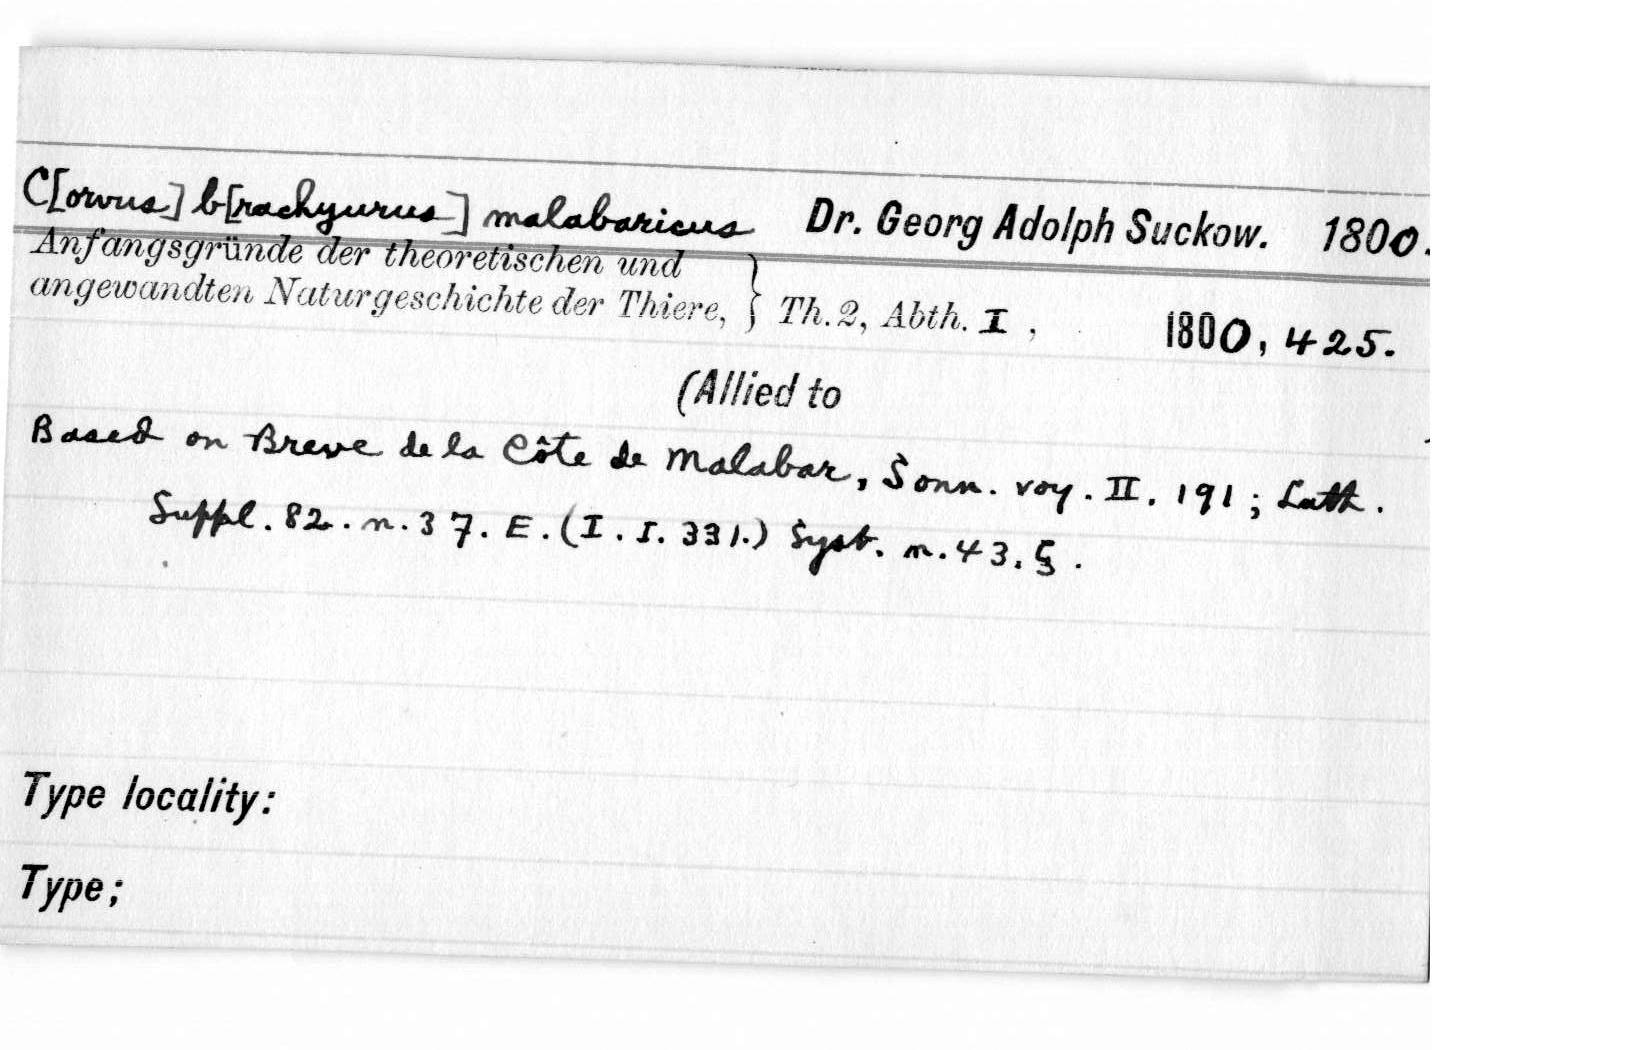 C[orvus] b[rachyurus] malabaricus Dr. Georg Adolph Suckow. 1800.
Anfangsgründe der theoretischen und
angewandten Naturgeschichte der Thiere, } Th. 2, Abth. I, 1800, 425.
(Allied to
Based on Breve de la Côte de Malabar, Sonn. voy. II. 191; Lath.
Suppl. 82. n. 37. E. (I. I. 331.) Syst. n. 43. ξ.
Type locality:
Type;